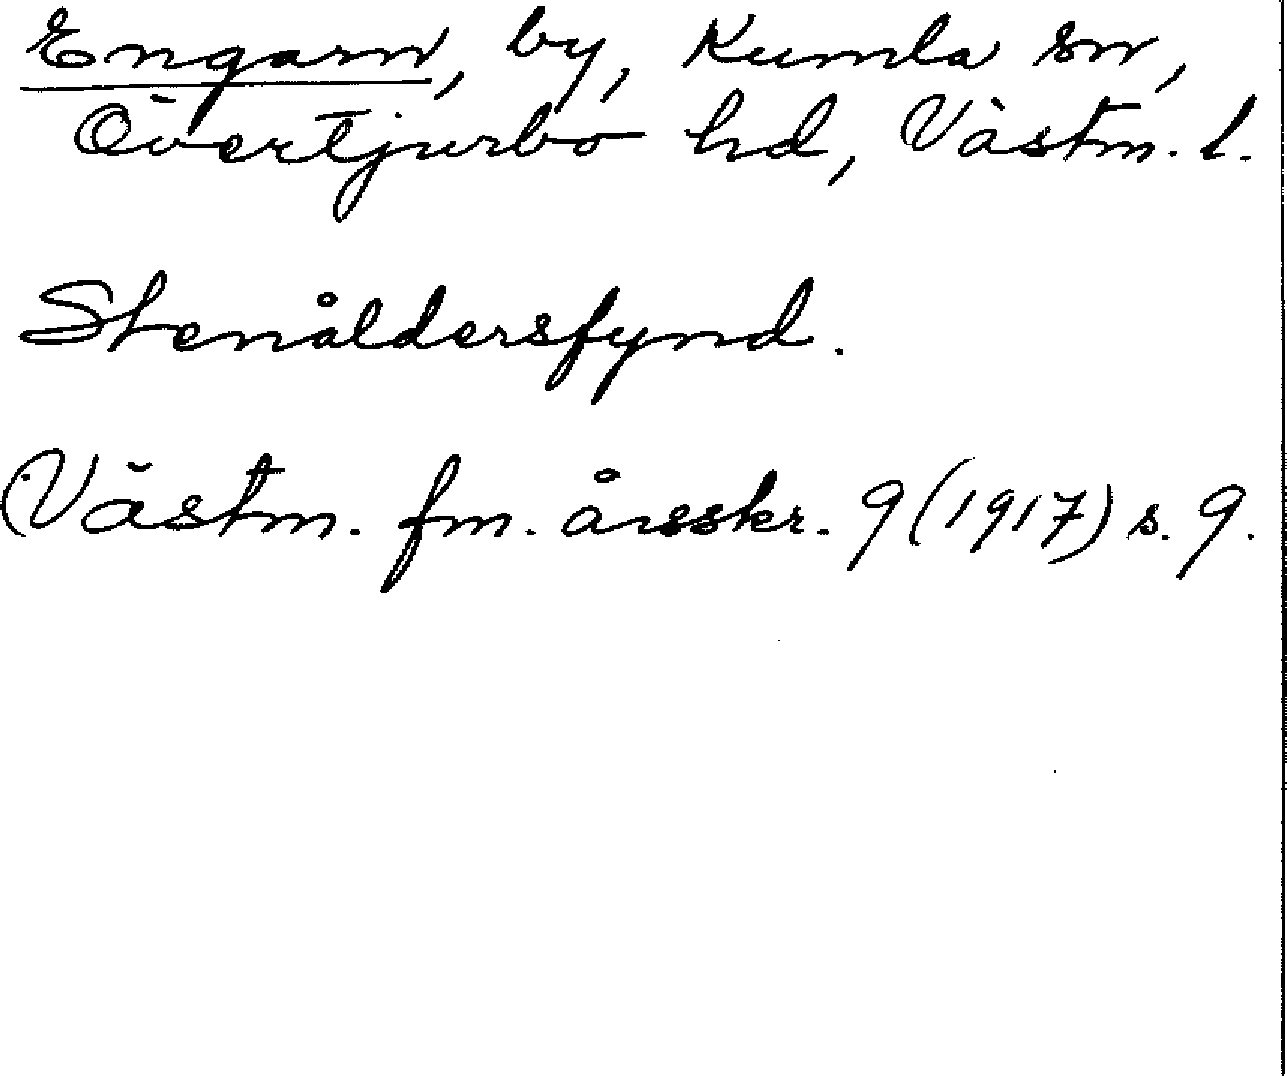 Engarn, by, Kumla sn,
Övertjurbo hd, Västm. l.
Stenåldersfynd.
Västm. fm. årsskr. 9 (1917) s. 9.